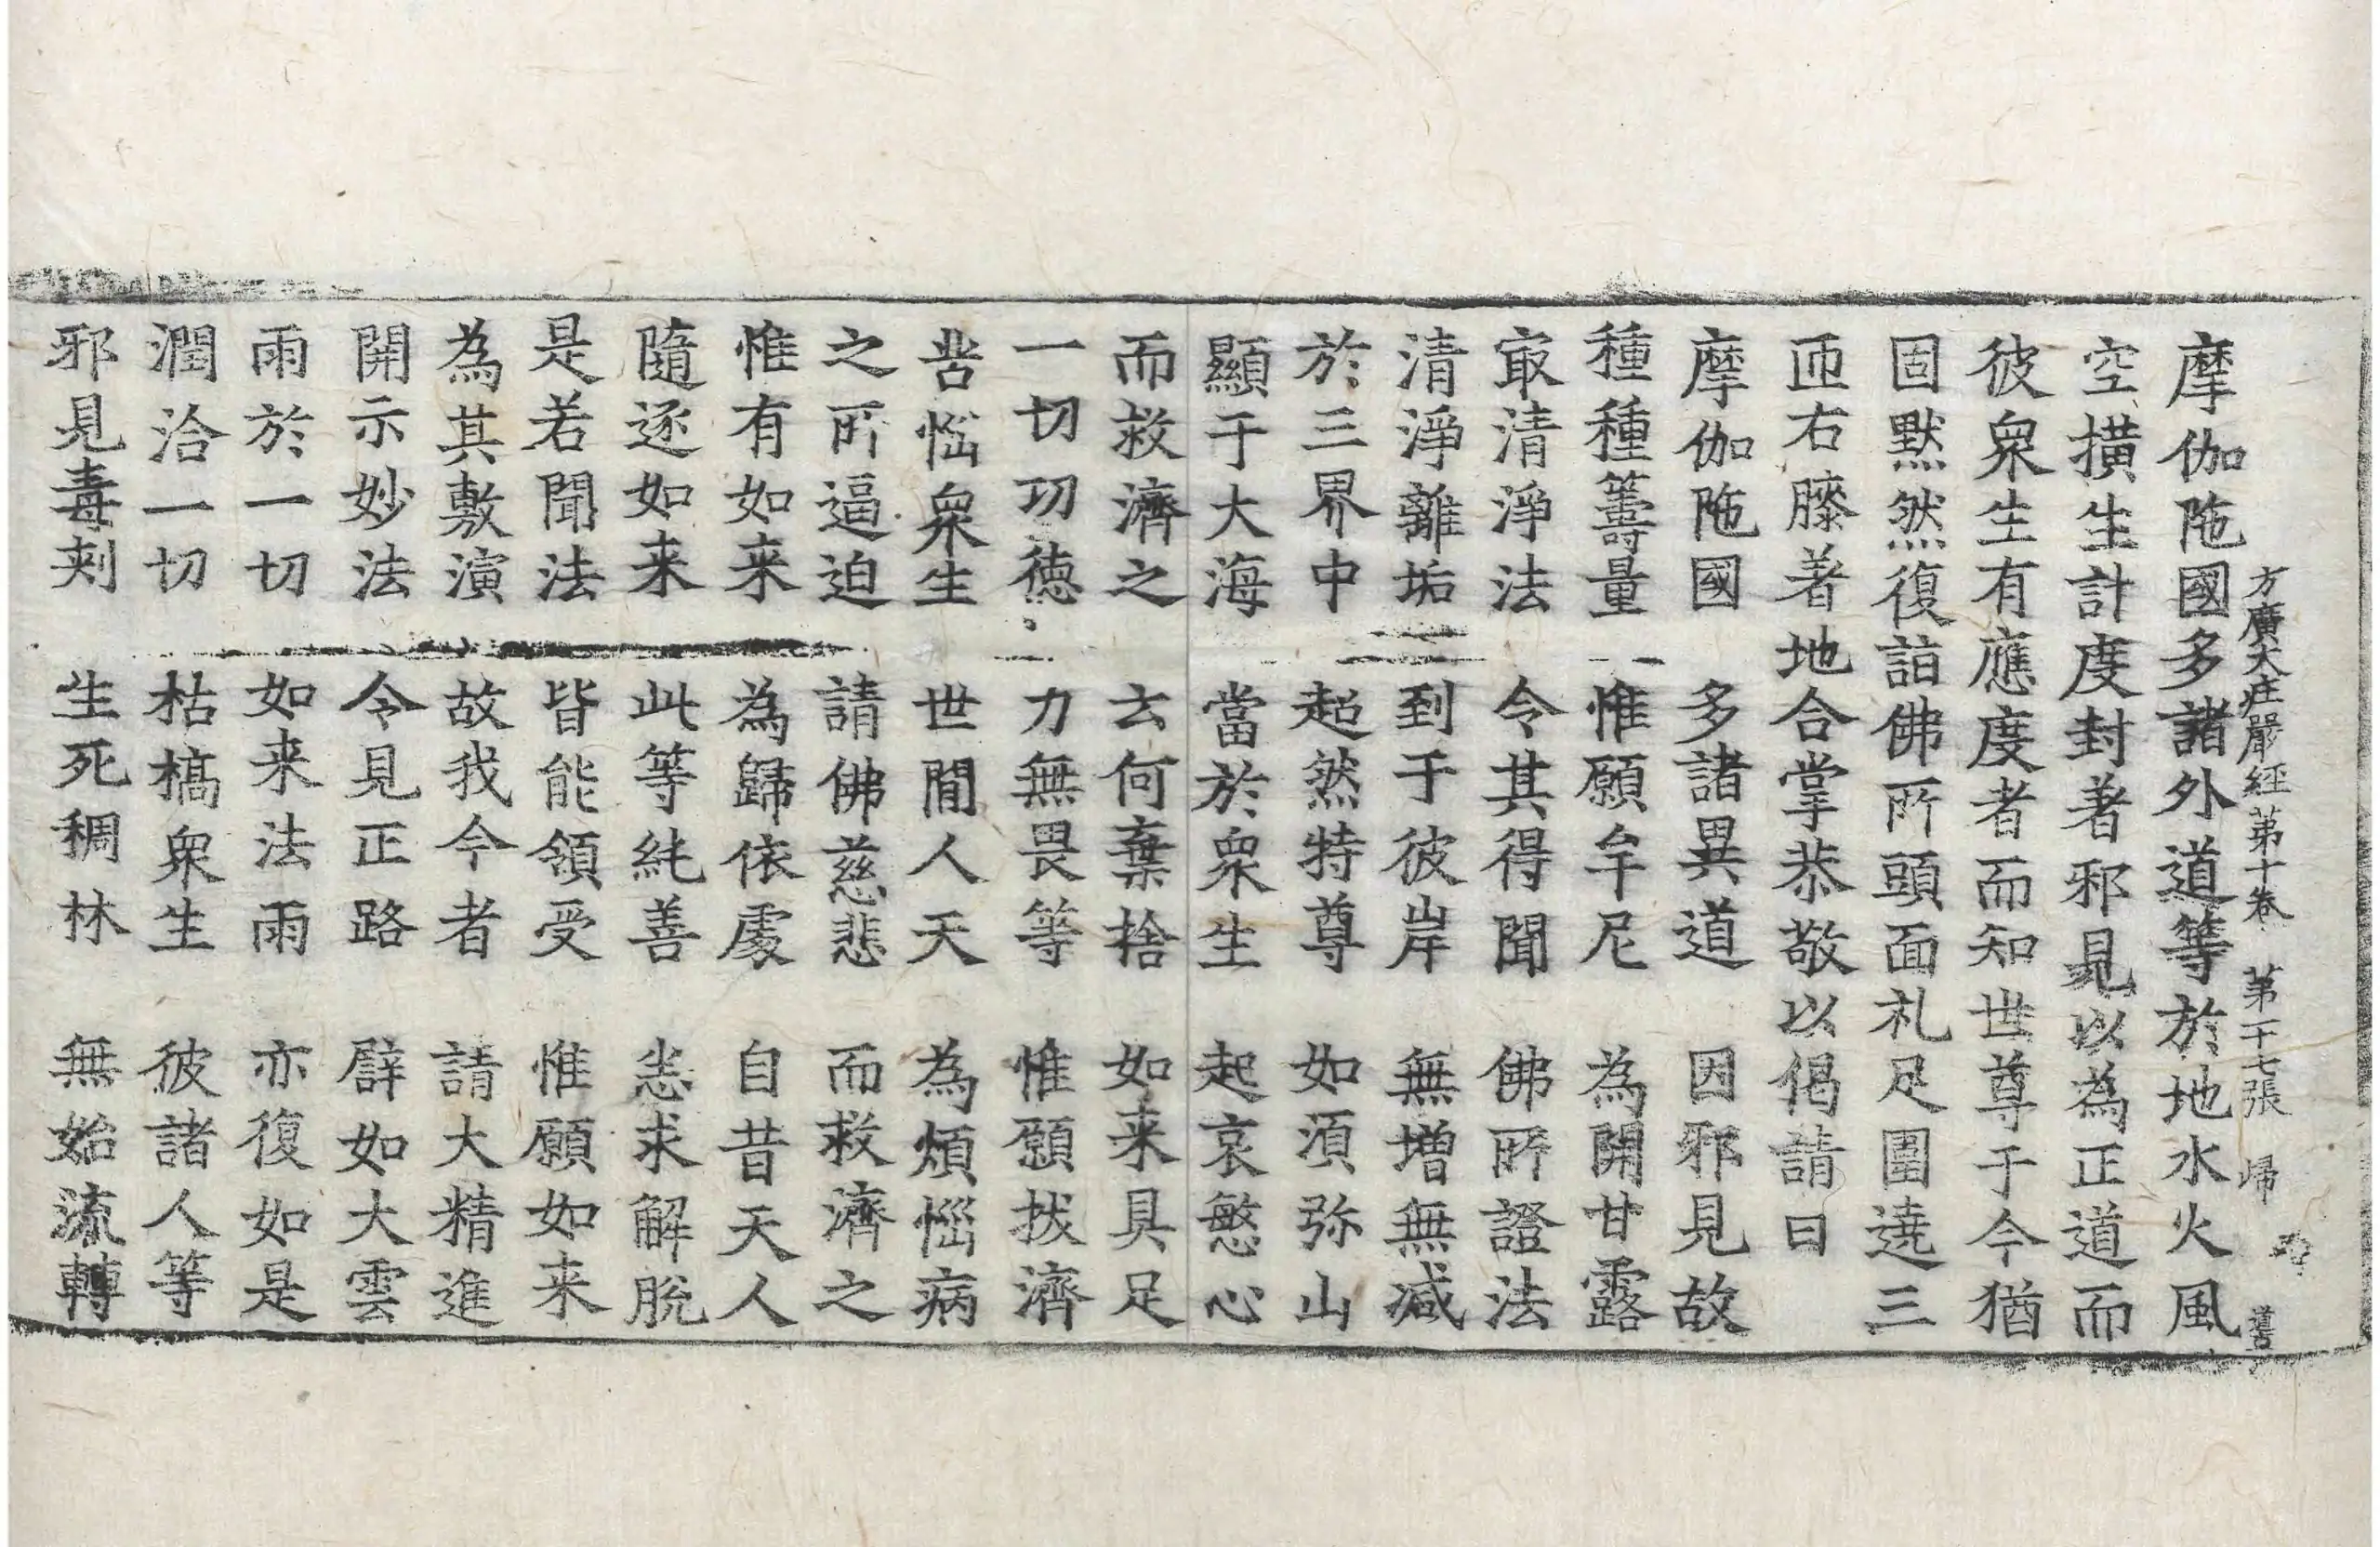 方廣大莊嚴經第十卷 第十七張 歸
摩伽陁國多諸外道等於地水火風
空橫生計度封著邪見以為正道而
彼衆生有應度者而知世尊于今猶
固默然復詣佛所頭面礼足圍遶三
匝右膝著地合掌恭敬以偈請曰
摩伽陁國 多諸異道 因邪見故
種種籌量 惟願牟尼 為開甘露
冣清淨法 令其得聞 佛所證法
清淨離垢 到于彼岸 無增無減
於三界中 超然特尊 如湏弥山
顯于大海 當於衆生 起哀愍心
而救濟之 云何棄捨 如来具足
一切功德 力無畏等 惟願拔濟
苦惱衆生 世間人天 為煩惱病
之所逼迫 請佛慈悲 而救濟之
惟有如来 為歸依處 自昔天人
隨逐如来 此等純善 恙求解脫
是若聞法 皆能領受 惟願如来
為其敷演 故我今者 請大精進
開示妙法 令見正路 譬如大雲
雨於一切 如来法雨 亦復如是
潤洽一切 枯槁衆生 彼諸人等
邪見毒刺 生死稠林 無始流轉